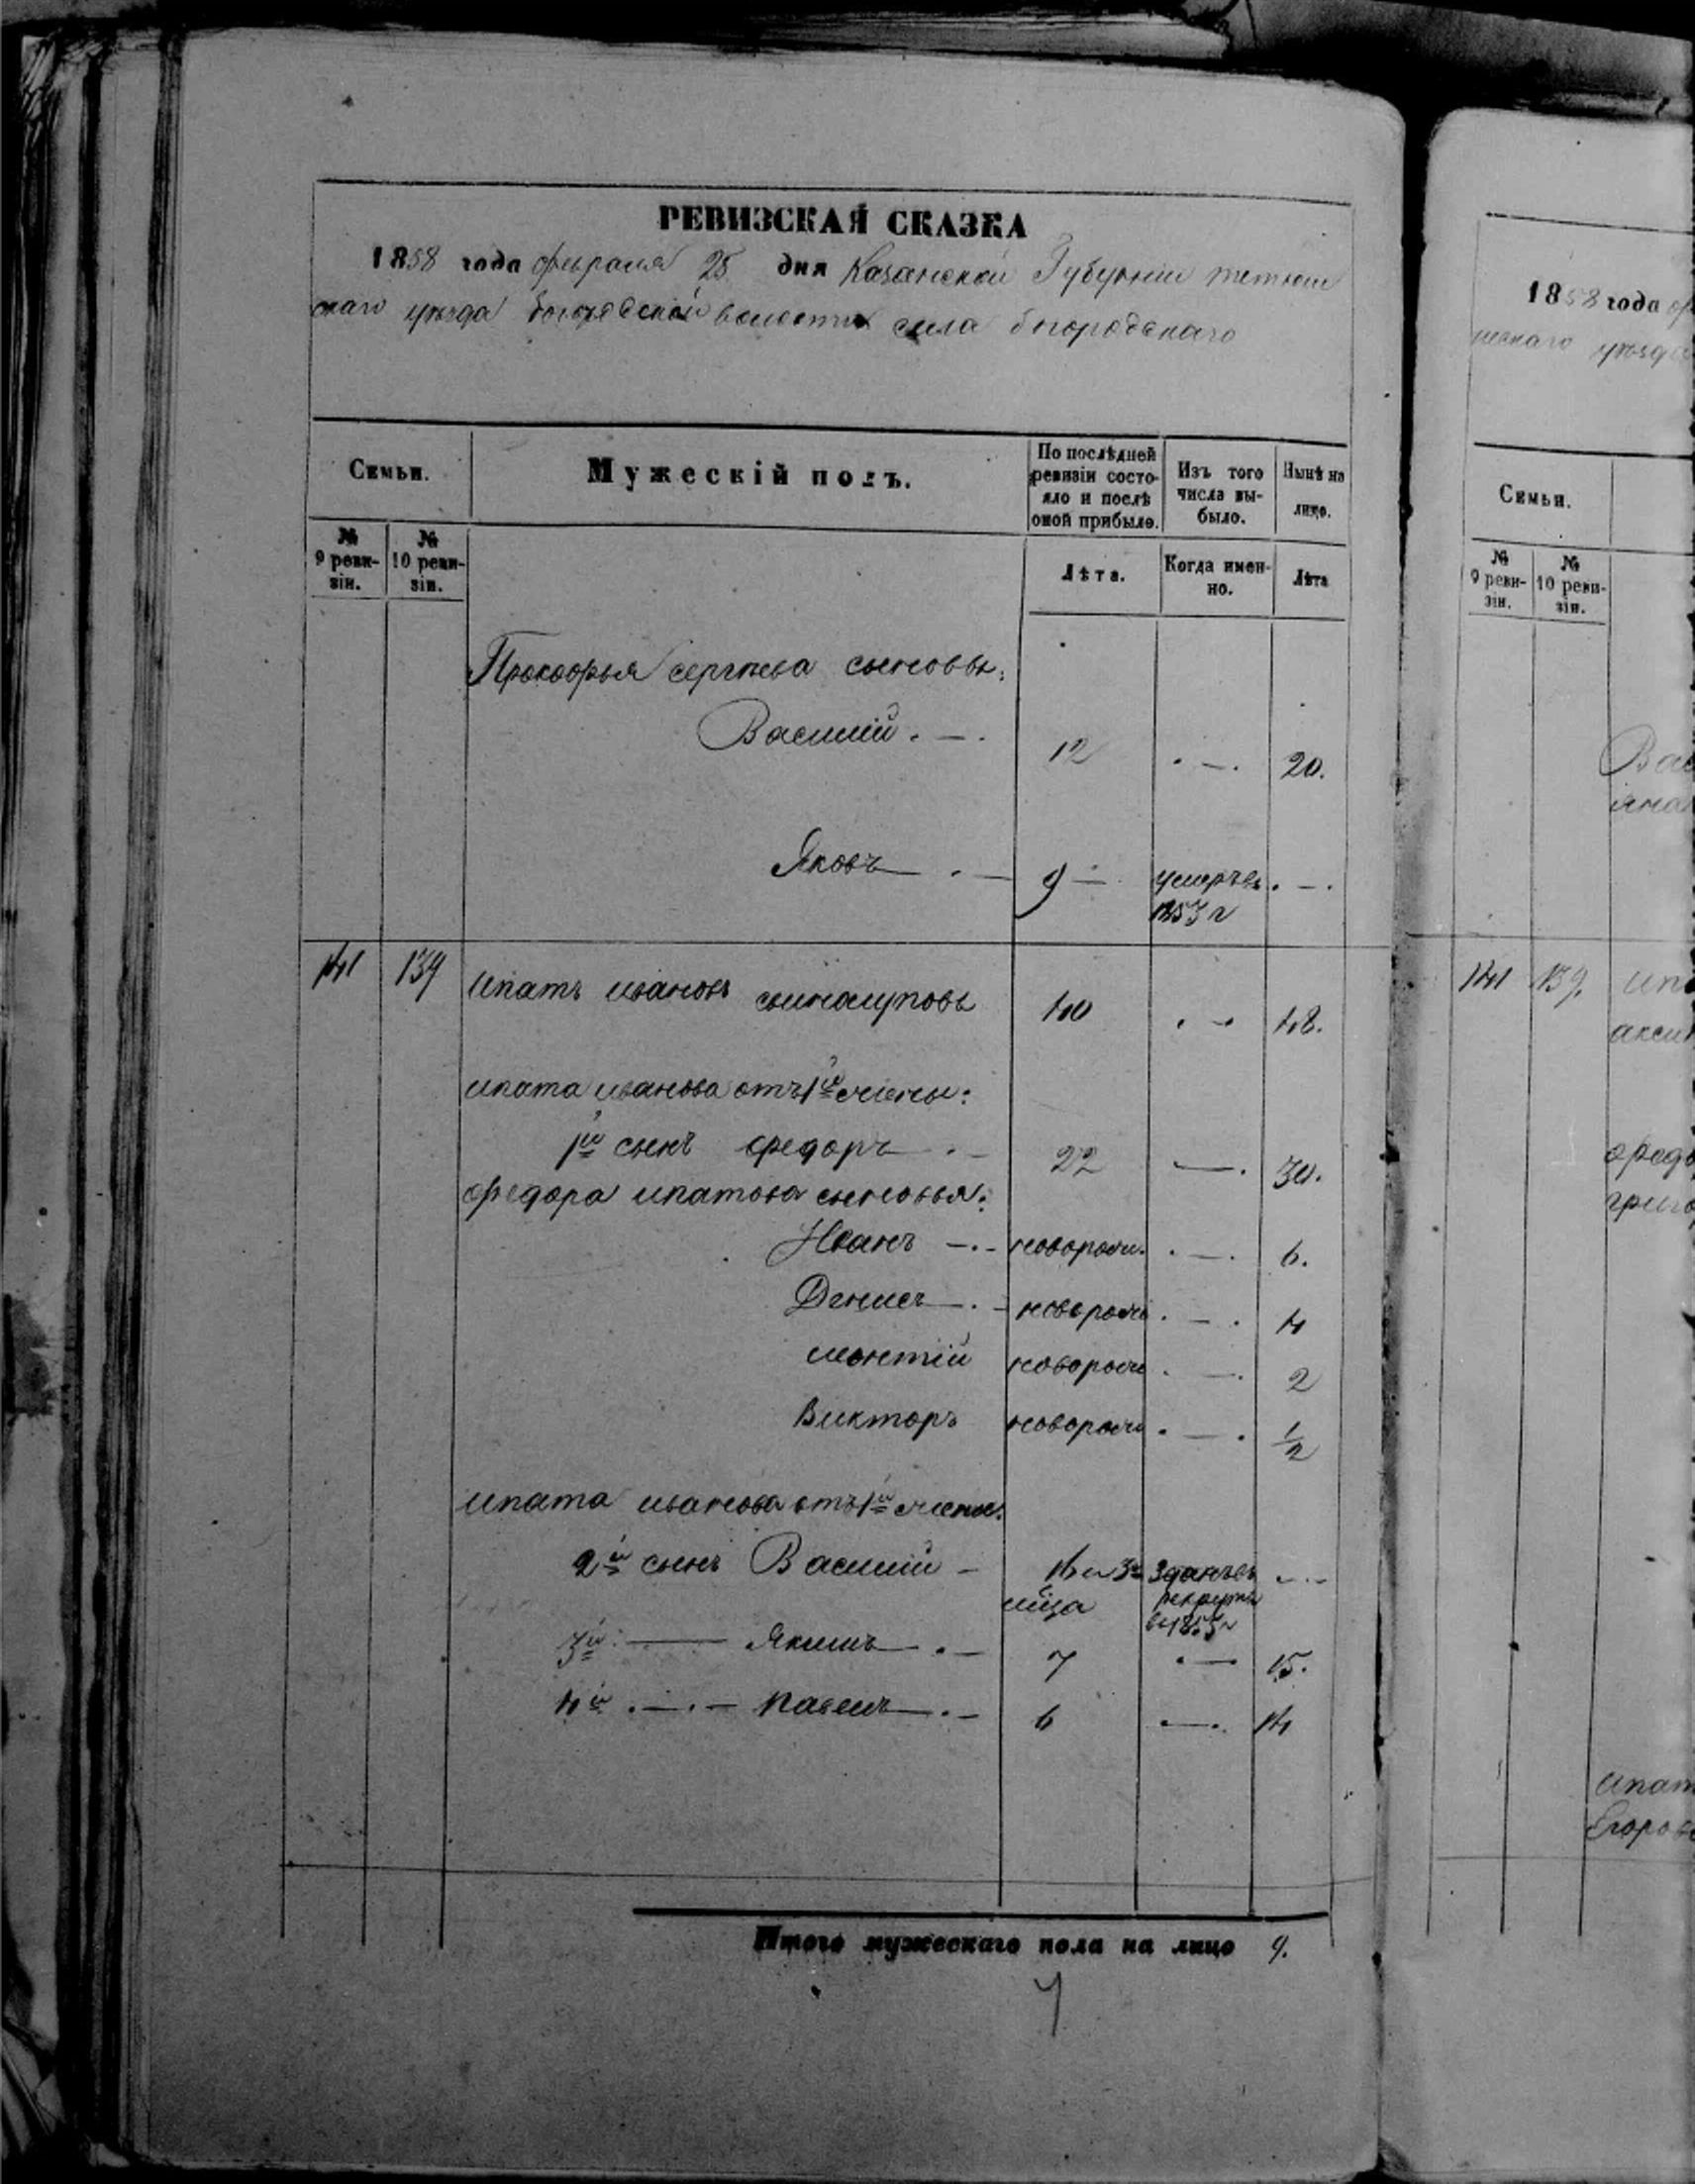 РЕВИЗСКАЯ СКАЗКА
1858 года февраля 25 дня Казанской Губерніи тетюш
скаго уѣзда богородской волости села богородскаго
Семьи.
Мужескій полъ.
По послѣдней
ревизіи состо-
яло и послѣ
оной прибыло.
Изъ того
числа вы-
было.
Нынѣ на
лицо.
№
9 реви-
зіи.
№
10 реви-
зіи.
Лѣта.
Когда имен-
но.
Лѣта
Прокофья сергѣева сыновья:
Василій . — . 12 . — . 20.
Яковъ — . — 9 — умеръ въ . — .
1853 г
141 139 ипатъ ивановъ 40 . — 48.
ипата иванова отъ 1й жены:
1й сынъ федоръ — . — 22 — . 30.
федора ипатова сыновья:
Иванъ — . — новорож. . — . 6.
Денисъ — . — новорож . — . 4
новорож . — . 2
Викторъ новорож . — . 1/2
ипата иванова отъ 1й жены.
2й сынъ Василій — 16 и 3 зданъ въ . — 
мѣца рекруты
въ 1855 г
3й . — Якимъ — . — 7 . — 15.
4й . — . — павелъ — . — 6 . — . 14
Итого мужескаго пола на лицо 9.
1858 года ф
шскаго уѣзда
Семьи.
№
9 реви-
зіи.
№
10 реви-
зіи.
Вас
141 139. ипа
акси
федо
григо
ипат
Егоров